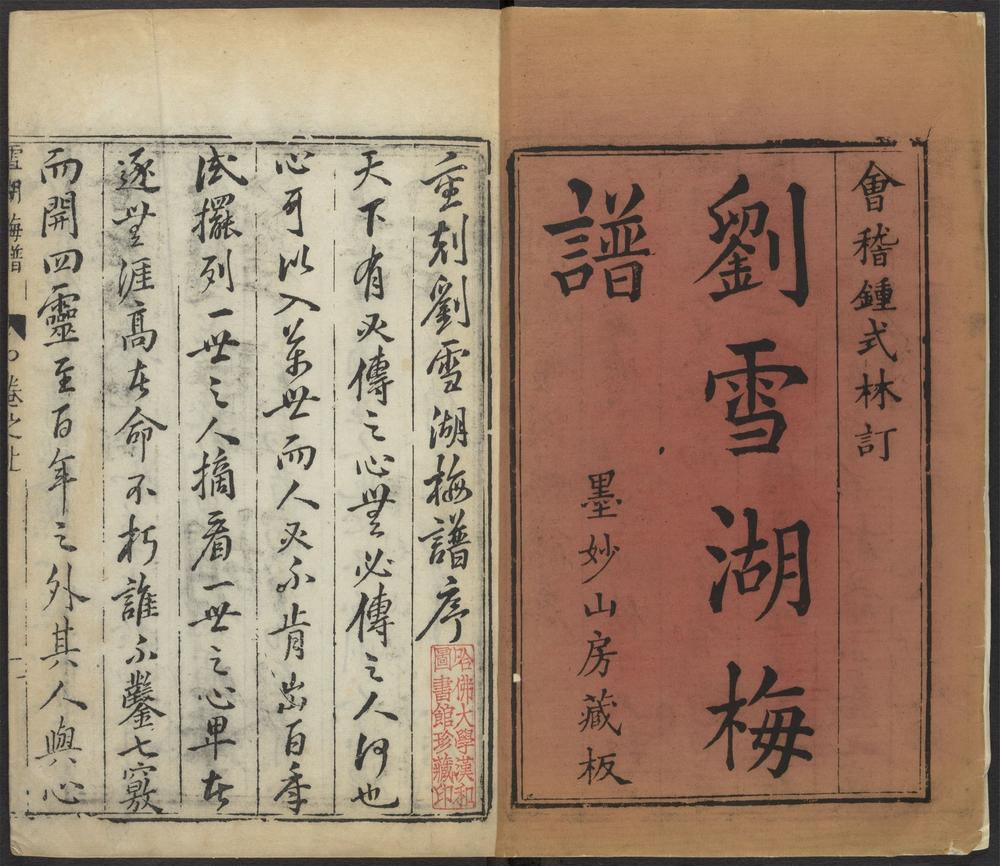 會稽鍾式林訂
劉雪湖梅
譜
墨妙山房藏板
重刻劉雪湖梅譜序
天下有必傳之心無必傳之人何也
心可以入萬世而人必不肯出百年
試擺列一世之人摘看一世之心畢在
逐無涯高在命不朽誰不鑿七竅
而開四靈至百年之外其人與心
雪湖梅譜 卷之上
哈佛大學漢和
圖書館珍藏印